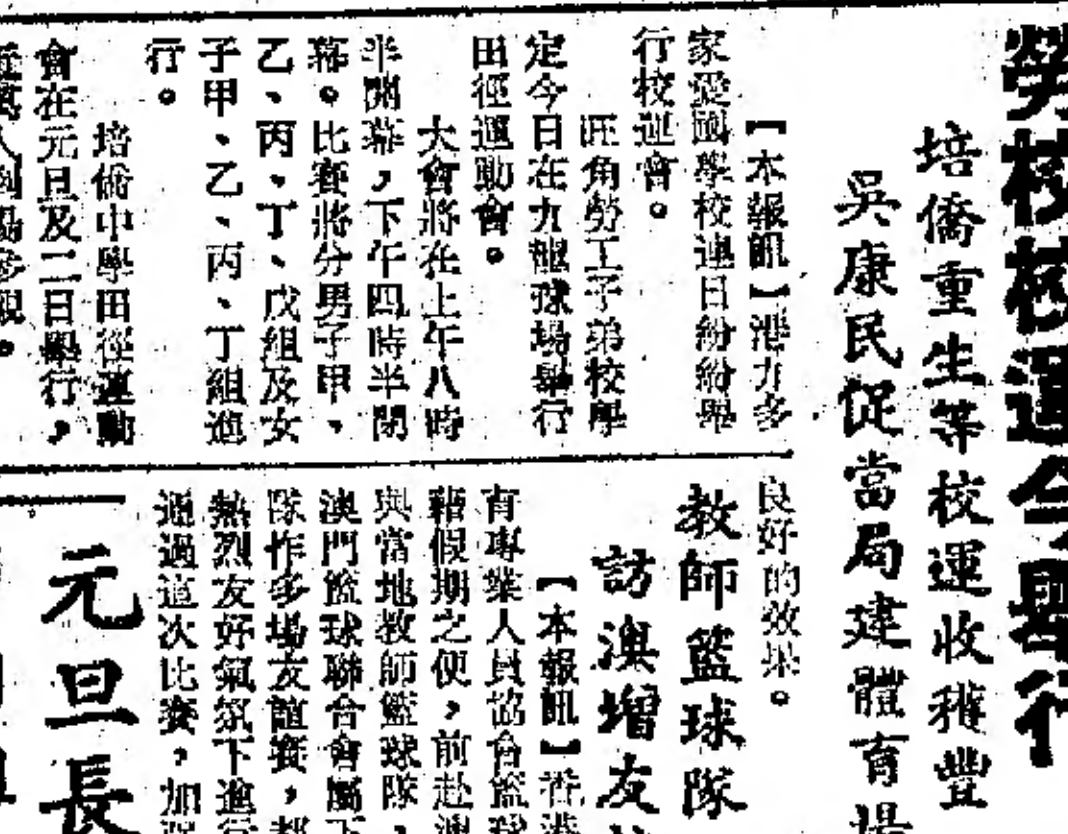 勞校校運今舉行
培僑重生等校運收穫豐
吳康民促當局建體育場
【本報訊】港九多
家愛國學校連日紛紛舉
行校運會。
旺角勞工子弟校學
定今日在九龍球場舉行
田徑運動會。
大會將在上午八時
半開幕，下午四時半閉
幕。比賽將分男子甲、
乙、丙、丁、戊組及女
子甲、乙、丙、丁組進
行。
培僑中學田徑運動
會在元旦及二日舉行，
近萬人到場參觀。
良好的效果。
教師籃球隊
訪澳增友
【本報訊】香港
育專業人員協會籃球
藉假期之便，前赴澳
與當地教師籃球隊，
澳門籃球聯合會屬下
隊作多場友誼賽，都
熱烈友好氣氛下進行
通過這次比賽，加
元旦長